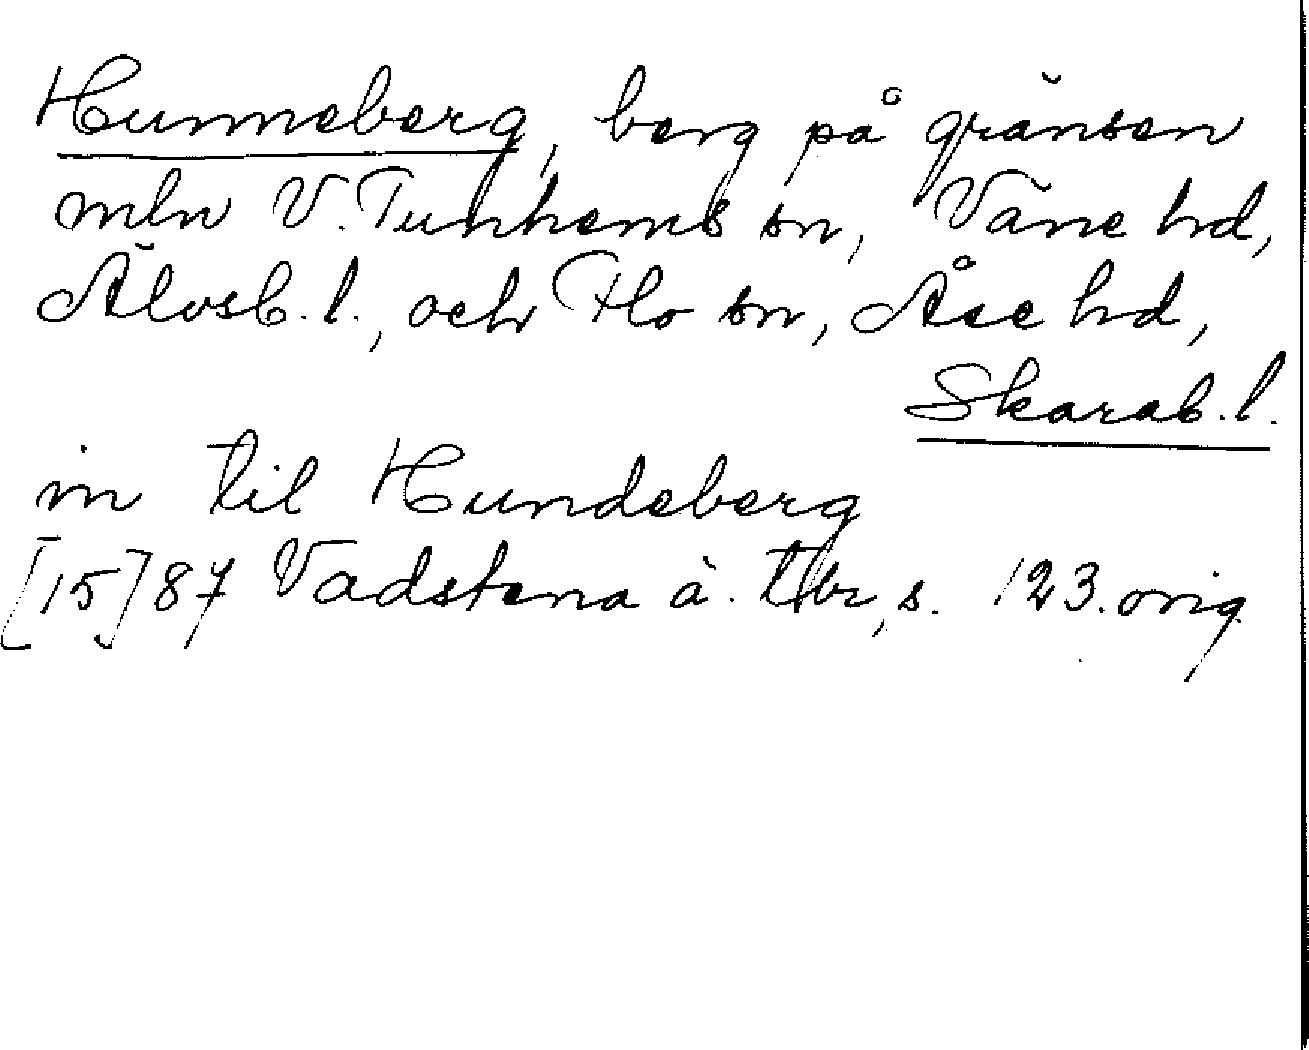 Hunneberg, berg på gränsen
mln V. Tunhems sn, Väne hd,
Älvsb. l., och Flo sn, Åse hd,
Skarab. l.
in til Hundeberg
[15]87 Vadstena ä. tbr, s. 123. orig